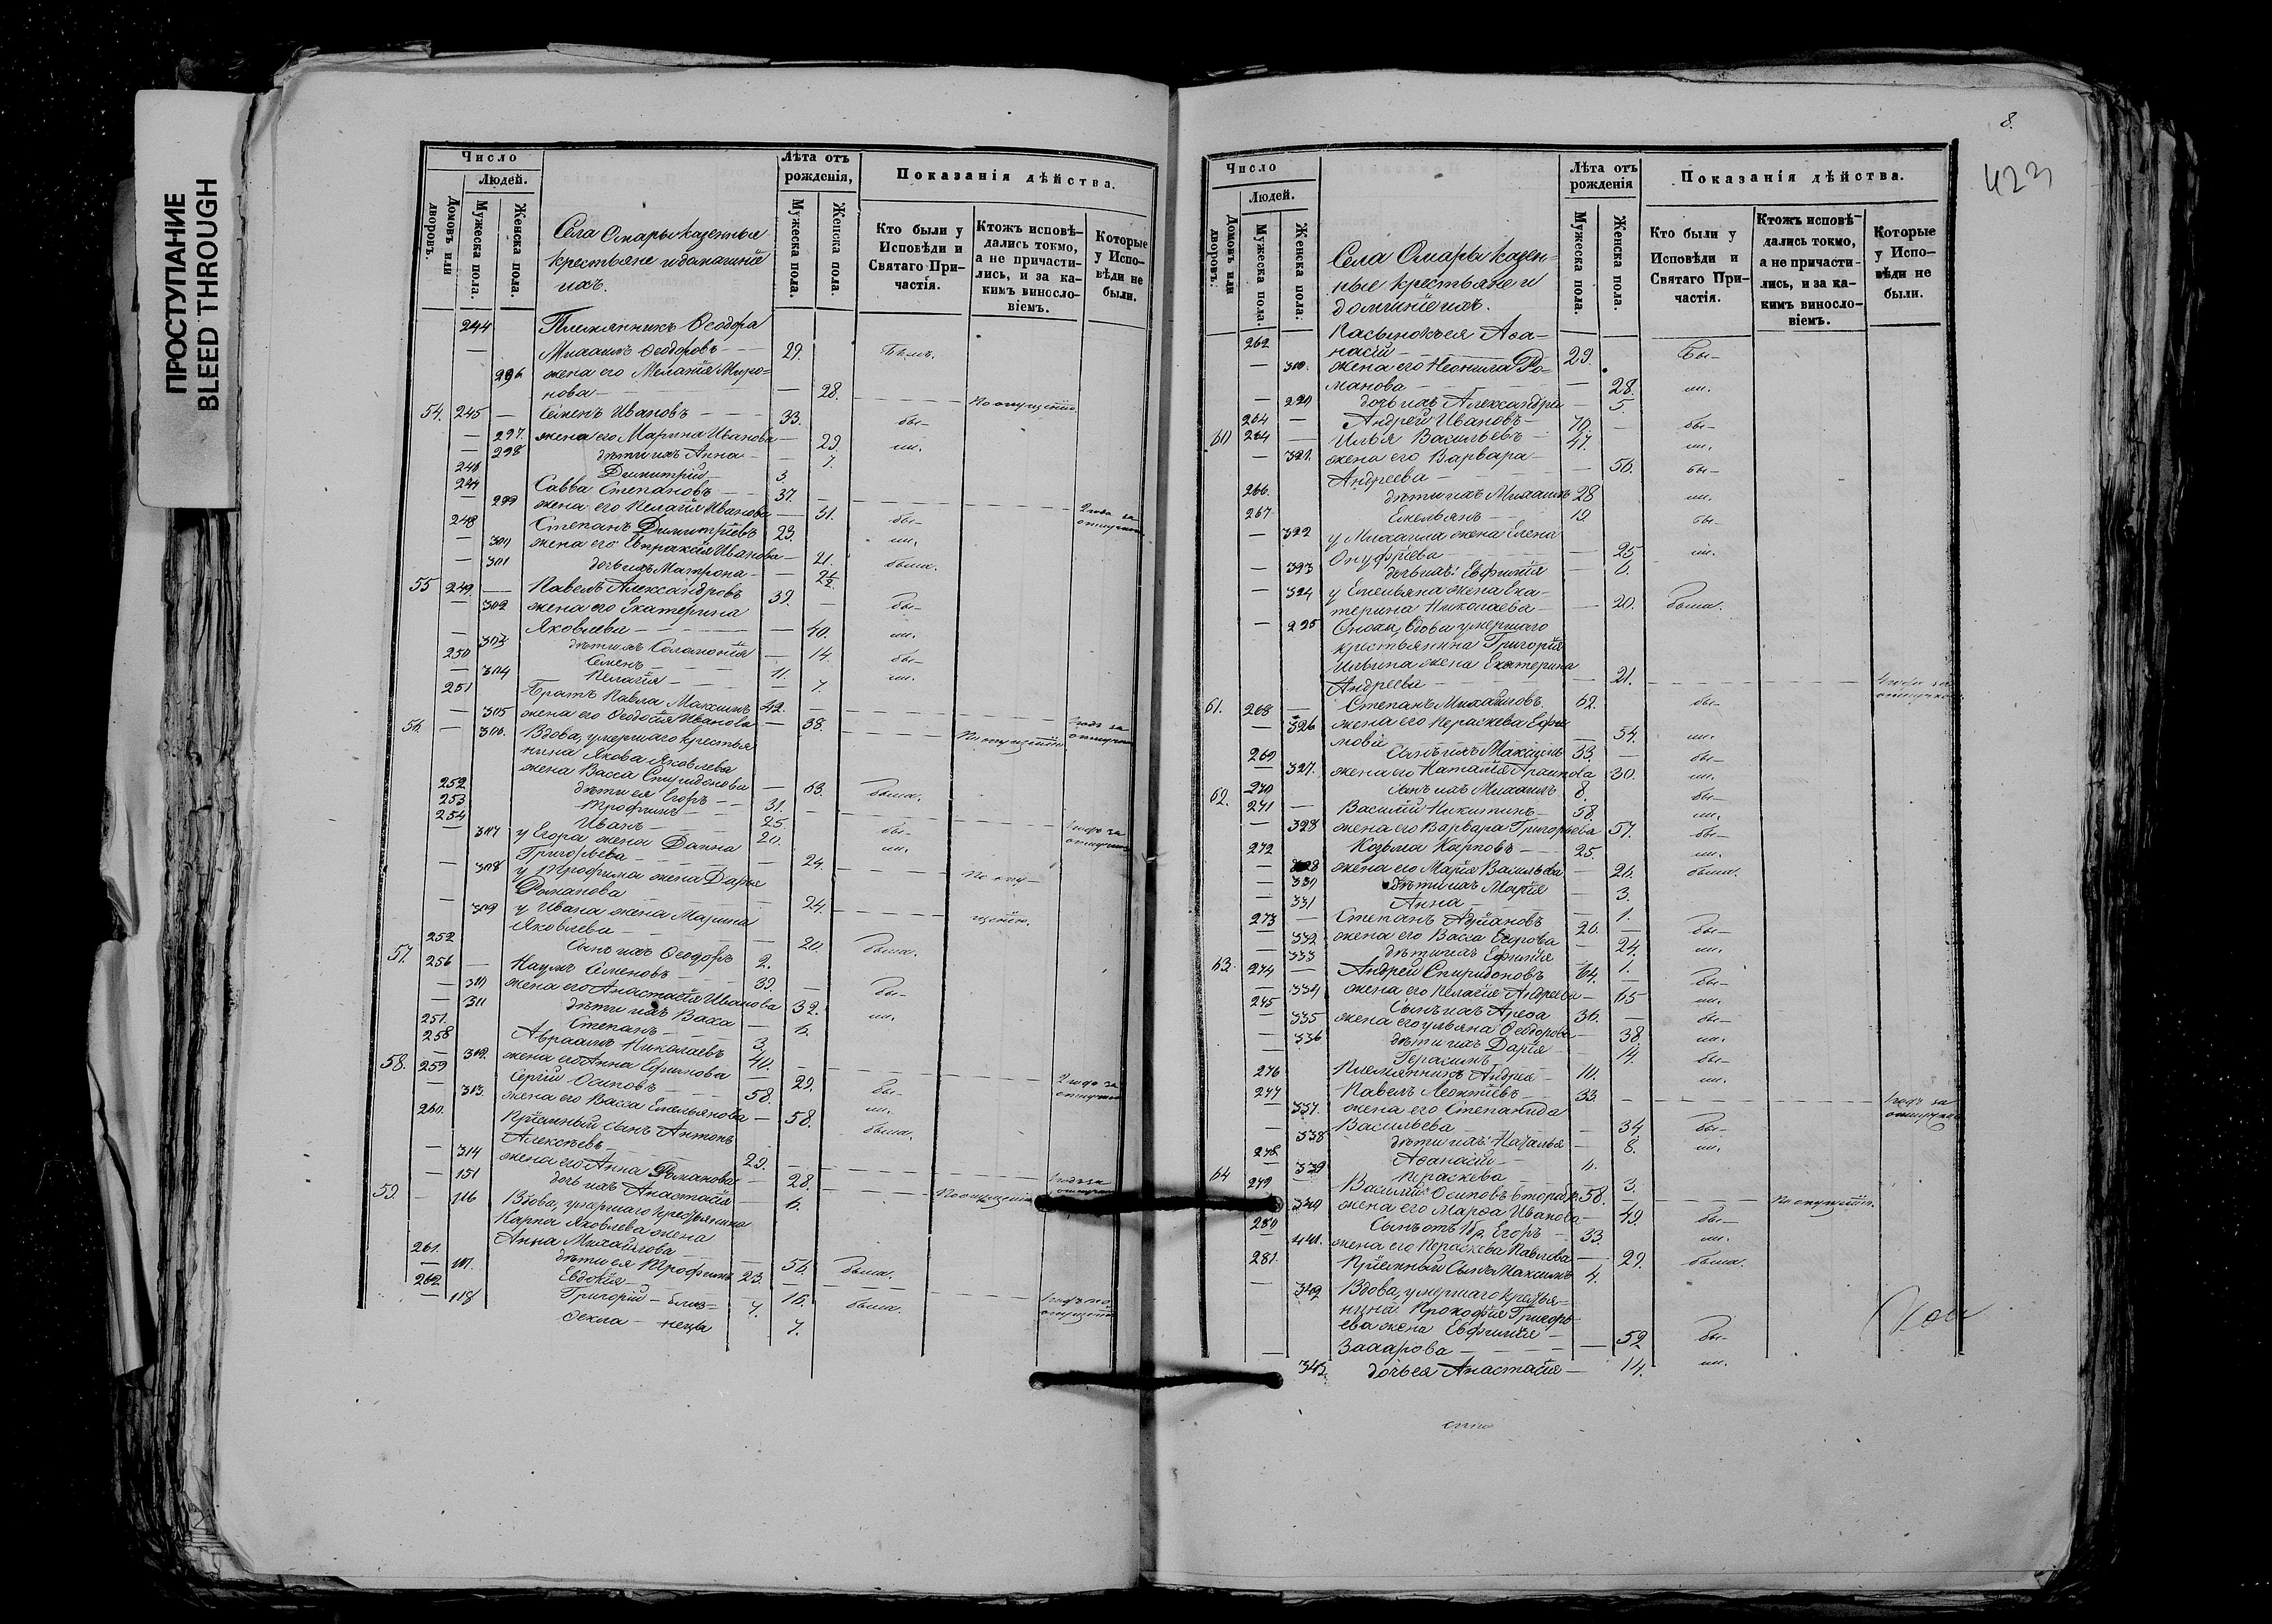 ПРОСТУПАНИЕ
BLEED THROUGH
Число
Людей.
Домовъ или дворовъ.
Мужеска пола.
Женска пола.
Села Омары казенные
крестьяне и домашніе
ихъ.
Лѣта отъ
рожденія,
Мужеска пола.
Женска пола.
Показанія дѣйства.
Кто были у
Исповѣди и
Святаго При-
частія.
Ктожъ исповѣ-
дались токмо,
а не причасти-
лись, и за ка-
кимъ виносло-
віемъ.
Которые
у Испо-
вѣди не
были.
244 Племянникъ Ѳеодора
— Михаилъ Ѳеодоровъ — 29. Былъ.
296 жена его Меланія Миро=
нова — — 28. По опущенію
54. 245 — Семенъ Ивановъ — 33. бы-
— 297. жена его Марина Иванова — 29. ли.
— 298 дѣти ихъ Анна — — 7.
246 Димитрій — 3.
247 Савва Степановъ — 37.
— 299 жена его Пелагія Иванова — 31. 2 года за
отлучкою
248 Степанъ Димитріевъ 23. бы-
— 300 жена его Евпраксія Иванова — 21. ли.
— 301 дочь ихъ Матрона — — 2½ была.
55 249. — Павелъ Александровъ 39. — бы-
— 302 жена его Екатерина
Яковлева — — 40. ли.
— 303 дѣти ихъ Соломонія — 14. бы-
250 Семенъ — 11. ли.
— 304 Пелагія — — 7.
251 Братъ Павла Максимъ 42. —
— 305 жена его Ѳеодосія Иванова — 38. 1 годъ за
отлучкою
56. — 306. Вдова, умершаго крестья
нина Якова Яковлева
жена Васса Спиридонова — 63. была. По опущенію
252 дѣти ея Егоръ — 31.
253 Трофимъ — 25.
254 Иванъ — 20. бы-
— 307 у Егора жена Данна
Григорьева — — 24. ли.
— 308 у Трофима жена Дарья
Романова — — 24. По опу-
щенію.
— 309 у Ивана жена Марина
Яковлева — — 20. была.
252 Сынъ ихъ Ѳеодоръ 2.
57. 256 — Наумъ Семеновъ — 39. — бы-
— 310 жена его Анастасія Иванова 32. ли.
— 311 дѣти ихъ Васса — 6.
257. Степанъ — 3.
258 Авраамъ Николаевъ 40.
— 312. жена его Анна Ефимова — 29. 2 года за
отлучкою
58. 259 Сергій Осиповъ — 58. бы-
— 313. жена его Васса Емельянова — 58. ли.
260. Пріемный сынъ Антонъ
Алексѣевъ — 29.
— 314 жена его Анна Романова — 28. 1 годъ за
отлучкою
— 151 дочь ихъ Анастасія — 6.
59. — 116 Вдова, умершаго крестьянина
Карпа Яковлева жена
Анна Михайлова — — 56. была.
261. дѣти ея Трофимъ 23.
— 117. Евдокія — — 16. была.
262. Григорій — близ= 7.
— 118 Ѳекла — нецы 7.
8.
423
Число
Людей.
Домовъ или дворовъ.
Мужеска пола.
Женска пола.
Села Омары казен=
ные крестьяне и
домашніе ихъ.
Лѣта отъ
рожденія
Мужеска пола.
Женска пола.
Показанія дѣйства.
Кто были у
Исповѣди и
Святаго При-
частія.
Ктожъ исповѣ-
дались токмо,
а не причасти-
лись, и за ка-
кимъ виносло-
віемъ.
Которые
у Испо-
вѣди не
были.
262 Пасынокъ ея Аѳа-
насій — 29. Бы-
— 310. жена его Неонила Ро=
манова — — 28. ли.
— 220 дочь ихъ Александра — 5.
264 — Андрей Ивановъ — 70. — бы-
60 264 — Илья Васильевъ — 47. ли.
— 321. жена его Варвара —
Андреева — — 56. бы-
266. дѣти ихъ Михаилъ 28 ли.
267 Емельянъ — 19. бы-
— 322 у Михаила жена Елена
Онуфріева — — 25 ли.
— 323 дочь ихъ: Евфимія — 6.
— 324 у Емельяна жена Ека-
терина Николаева — — 20. была.
— 225 Сноха, вдова умершаго
крестьянина Григорія
Ильина жена Екатерина
Андреева — — 21. 1 года за
отлучкою
61. 268 — Степанъ Михайловъ. 62. бы-
— 326 жена его Параскева Ефи
мова — 54. ли.
269 Сынъ ихъ Максимъ 33. — бы-
— 327. жена его Наталія 30. ли.
270 сынъ ихъ Михаилъ 8. бы-
62. 271 — Василій Никитинъ — 58. ли.
— 328 жена его Варвара Григорьева 57. бы-
272 Козьма Карповъ — 25. ли.
— жена его Марія Васильева — 26. была.
— 330 дѣти ихъ Марія — 3.
— 331 Анна — — 1.
273 — Степанъ Адріановъ 26. — Бы-
— 332 жена его Васса Егорова — 24. ли.
— 333 дѣти ихъ Ефимія — 1.
63. 274 — Андрей Спиридоновъ 64. — Бы-
— 334 жена его Пелагія Андреева — 65 ли.
275 Сынъ ихъ 36. — бы-
— 335 жена его Ульяна Ѳеодорова — 38. ли.
— 336 дѣти ихъ Дарія — 14. бы-
276 Герасимъ — 10. ли.
Племянникъ Андрея —
277 Павелъ Леонтіевъ — 33. — 1 годъ за
отлучкою
— 337. жена его Степанида
Васильева — — 34 бы-
— 338 дѣти ихъ: Наталья — 8. ли.
278. Аѳанасій — 6.
— 339 Параскева — 3.
64 279 Василій Осиповъ второбр. 58. — По опущенію.
— 340 жена его Марѳа Иванова — 49. бы-
280 Сынъ отъ 1 бр. Егоръ — 33. ли.
— 441. жена его Параскева Павлова — 29. была.
281. Пріемный сынъ Максимъ 4.
— 342 Вдова, умершаго крестья-
нина Прокофія Григорь
ева жена Евфимія —
Захарова — — 52 бы-
— 343. дочь ея Анастасія — 14. ли.